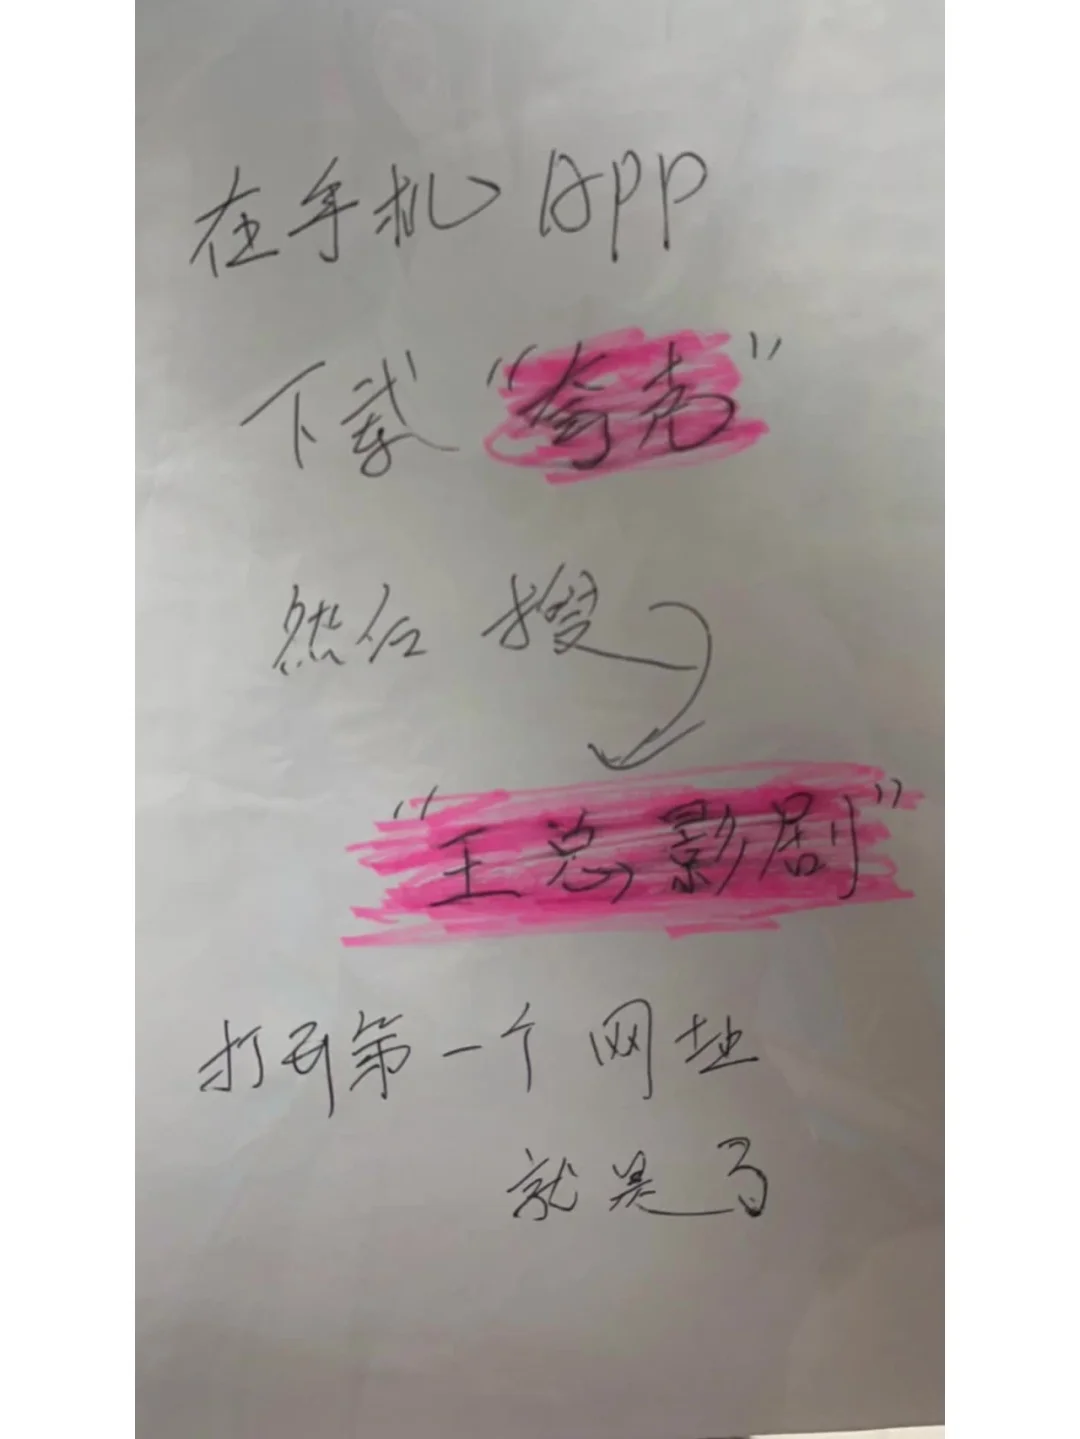 在手机APP
下载“夸克”
然后搜
“王总影剧”
打开第一个网址
就是了